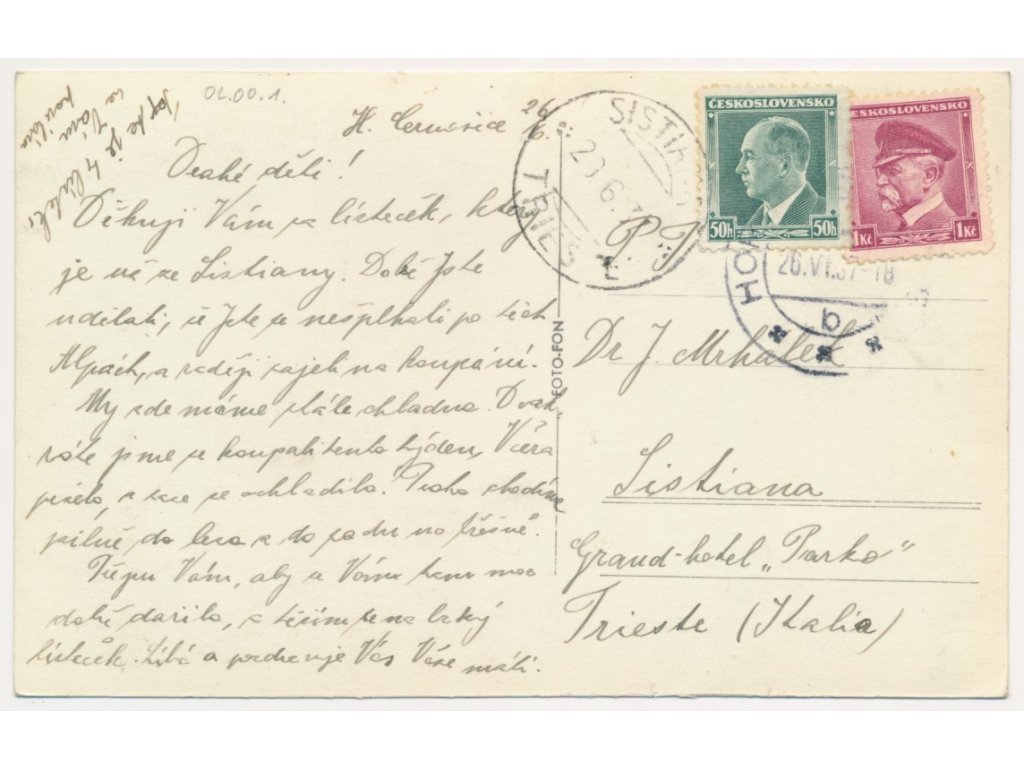 OL.00.1.
H. Cernošice 26/6.
Drahé děti!
Děkuji Vám za lísteček, který
je už ze Sistiany. Dobře Jste
udělali, že Jste se nešplhali po těch
Alpách, a raději zajeli na koupání.
My zde máme stále chladno. Dvak-
ráte jsme se koupali tento týden. Včera
pršelo, a zase se ochladilo. Proto chodíme
pilně do lesa a do sadu na třešně.
Přeju Vám, aby se Vám tam moc
dobře dařilo, a těším se na brzký
lísteček. Líbá a pozdravuje Vás Vaše máti.
FOTO-FON
SISTIANA
TRIESTE
26.VI.37-18
HO
b
ČESKOSLOVENSKO
50h 50h
ČESKOSLOVENSKO
1Kč 1Kč
P. T.
Dr J. Mrhálek
Sistiana
Grand-hotel „Parko"
Trieste (Italia)